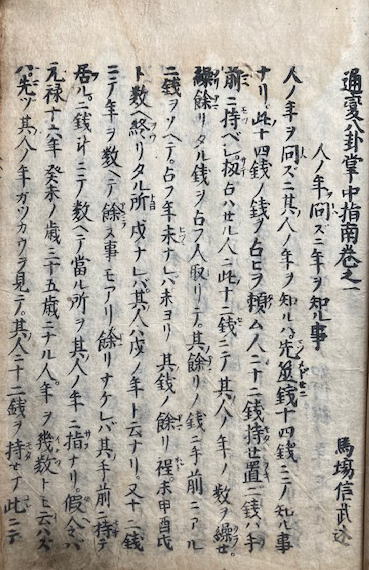 通変八卦掌中指南巻之一
馬場信武述
人ノ年ヲ問ズニ年ヲ知ル事
人ノ年ヲ問ズニ其人ノ年ヲ知ルハ先銭十四銭ニノ知ル事
ナリ此十四銭ノ銭ヲ占ヒヲ頼ム人ニ十二銭持セ置二銭ハ手
前ニ持ベシ扨占ハセル人ニ此十二銭ニテ其人ノ年ノ数ヲ繰セ
繰餘リタル銭ヲ占フ人取リテ其餘リノ銭ニ手前ニアル
二銭ヲソヘテ占フ年未ナレバ未ヨリ其銭ノ餘リ程未申酉戌
ト数ヘ終リタル所戌ナレバ其人ハ戌ノ年ト云ナリ又十二銭
ニテ年ヲ数ヘテ餘ラヌ事モアリ餘リナケレバ其手前ニ持テ
居ル二銭計ニテ数ヘテ當ル所ヲ其人ノ年ニ指ナリ假令バ
元禄十六年癸未ノ歳三十五歳ニナル人年ヲ幾数トモ云ハズ
ハ先ヅ其人ノ年ガツカウヲ見テ其人ニ十二銭ヲ持セテ此ニテ